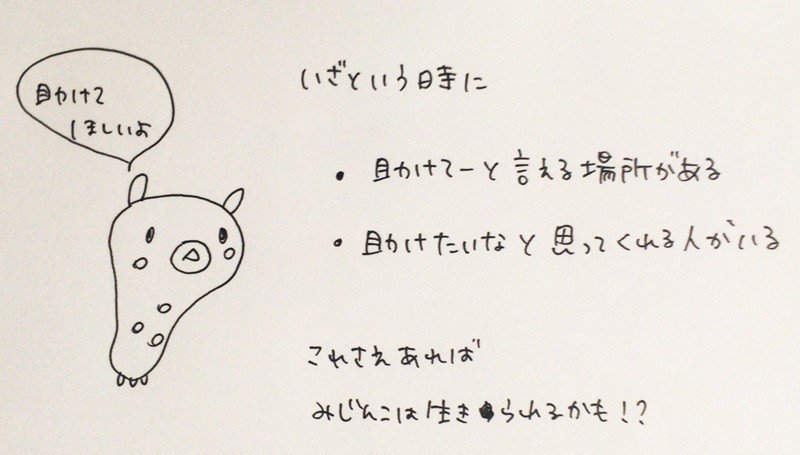 助かけて
ほしいよ
いざという時に
・助かけてーと言える場所がある
・助かけたいなと思ってくれる人がいる
これさえあれば
みじんこは生きられるかも!?